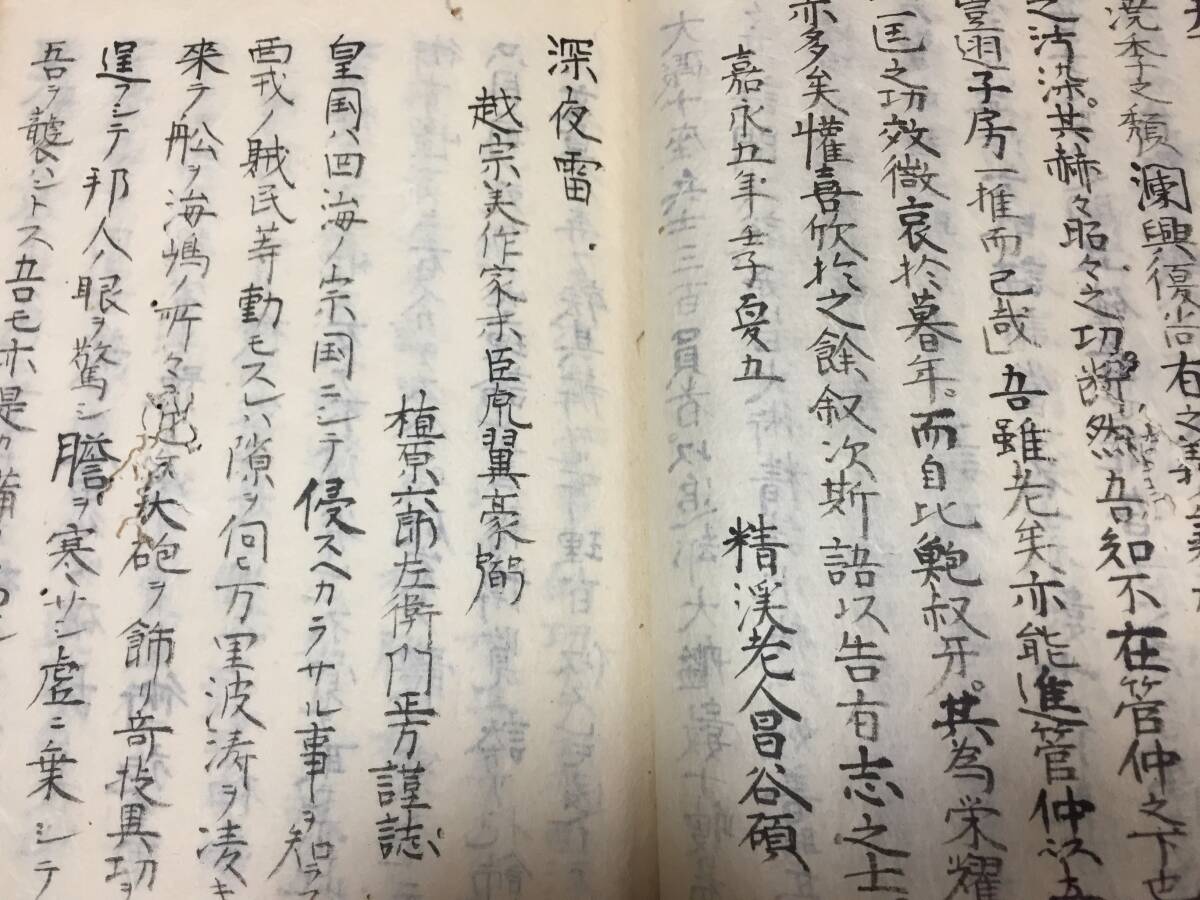 浣季之類瀾興復尚有之義
之汚染。其赫々昭々之功断然吾知不在管仲之下也
壹週子房一推而已哉」吾雖老矣亦能進管仲以
一匡之功效微哀於暮年。而自比鮑叔牙。其為栄耀
亦多矣懽喜欣於之餘叙次斯語以告有志之士
嘉永五年壬子夏五
精渓老人昌谷碩
深夜雷
越宗美作家末臣虎翼豪髜
植原六郎左衛門正方謹誌
皇国ハ四海ノ宗国ニシテ侵スヘカラサル事ヲ知ラス
西戎ノ賊民等動モスレハ隙ヲ伺ヒ万里波涛ヲ凌キ
来ラ舩ヲ海嶋ノ所々大砲ヲ飾リ奇技具功ヲ
逞フシテ邦人ノ眼ヲ驚シ膽ヲ寒サシ虚ニ乗シテ
吾ヲ襲ハントス吾モ亦是カ備